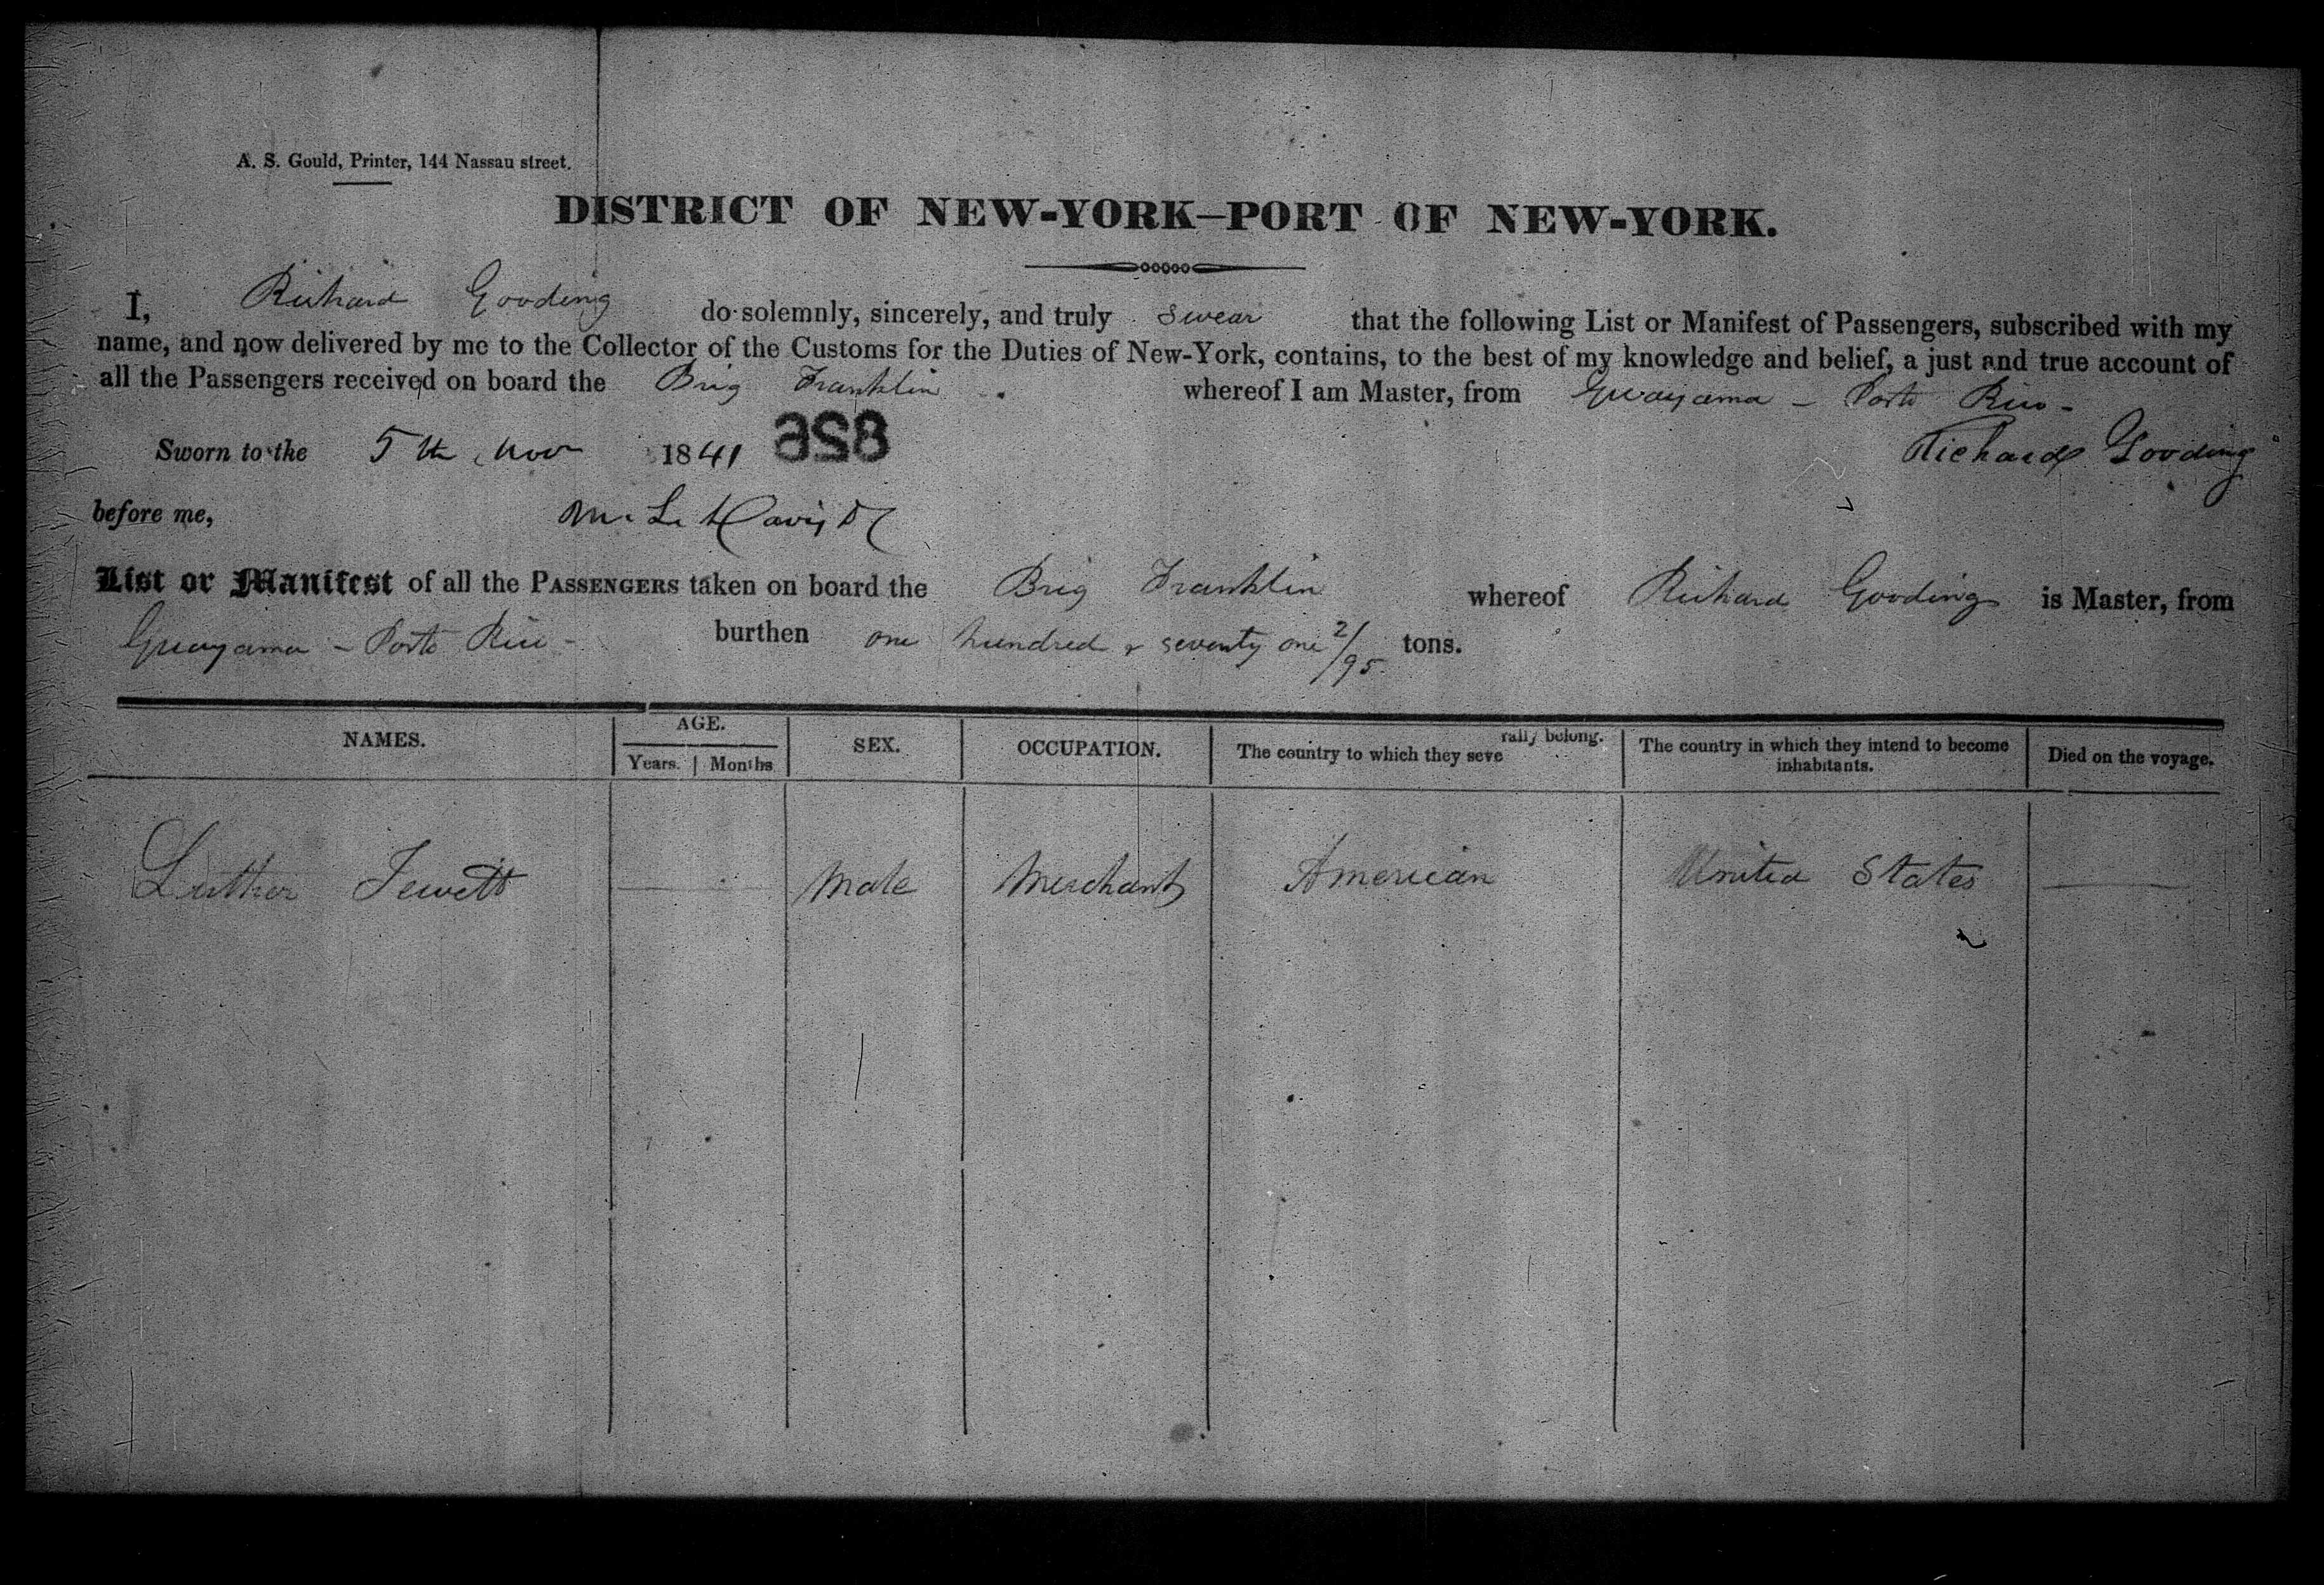 A. S. Gould, Printer, 144 Nassau street.
DISTRICT OF NEW-YORK—PORT OF NEW-YORK.
I, Richard Gooding do solemnly, sincerely, and truly swear that the following List or Manifest of Passengers, subscribed with my
name, and now delivered by me to the Collector of the Customs for the Duties of New-York, contains, to the best of my knowledge and belief, a just and true account of
all the Passengers received on board the Brig Franklin whereof I am Master, from Guayama - Porto Rico -
Sworn to the 5th Nov 1841 828 Richard Gooding
before me, M. L. Davis
List or Manifest of all the PASSENGERS taken on board the Brig Franklin whereof Richard Gooding is Master, from
Guayama - Porto Rico - burthen one hundred & seventy one 2/95 tons.
NAMES. AGE. Years. Months SEX. OCCUPATION. The country to which they seve rally belong. The country in which they intend to become inhabitants. Died on the voyage.
Luther Jewett Male Merchant American United States